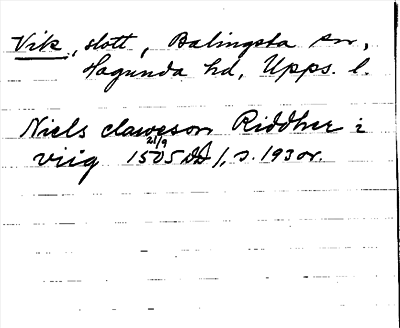 Vik, slott, Balingsta sn,
Hagunda hd, Upps. l.
Niels claweson Riddher i
viig 21/9 1505 DD 1, s. 193 or.